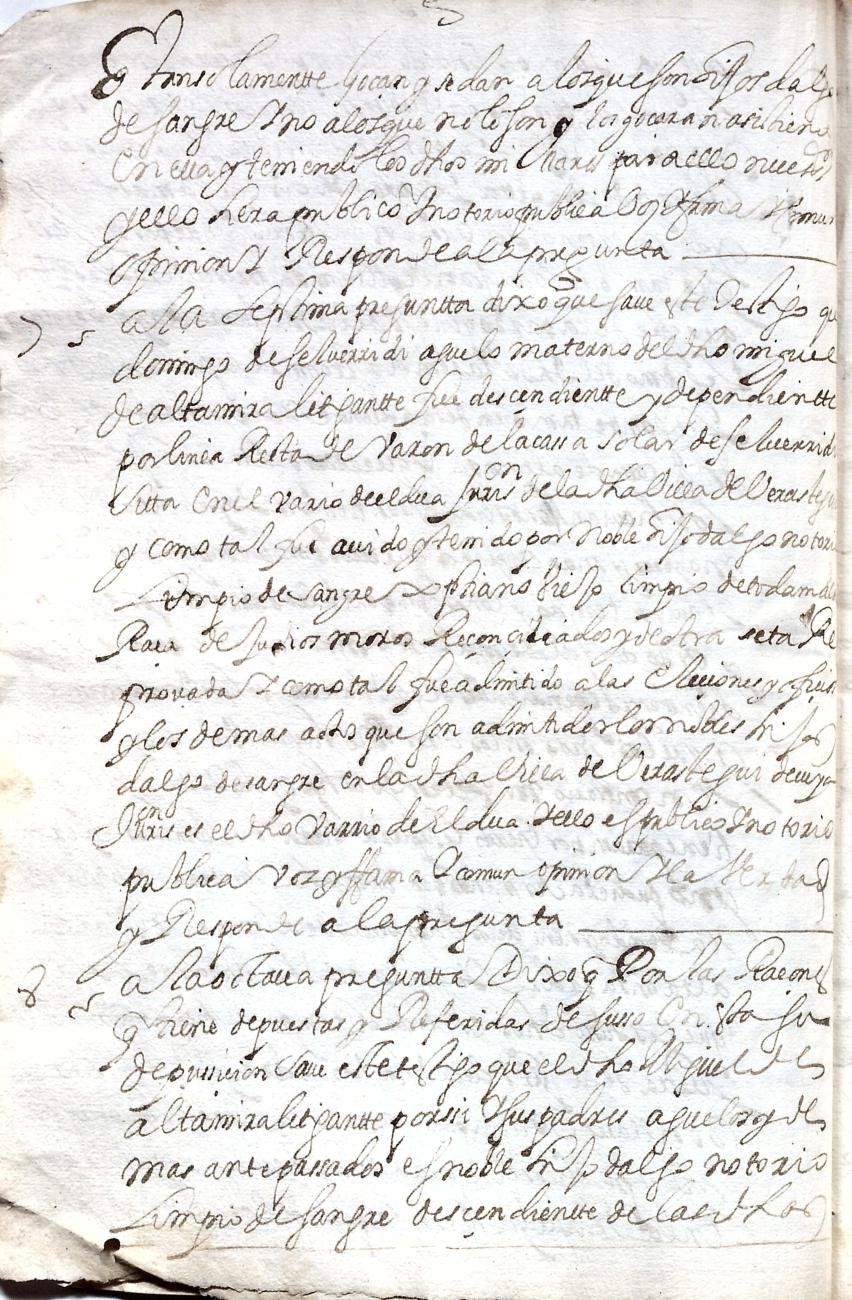 y tansolamentte gocan y se dan a los que son hijos dalgo
de sangre y no a los que no lo son y los gocaran asi bien
y ello hera publico y notorio publica voz y fama y comun
opinion y Responde a la pregunta
7 a la septima preguntta dixo que save este testigo que
domingo de selverridi aguelo materno del dho miguel
de altamira letigantte fue descendientte y dependientte
por linea Resta de varon de la cassa solar de selverridi
sitta en el vario de eldua Jurison de la dha villa de Verastegui
y como tal fue avido y tenido por noble hijo dalgo notorio
Limpio de sangre xphiano viejo limpio de toda mala
Raca de judios moros Reconciliados y de otra seta Re
provada y como tal fue admitido a las elecciones y oficios
y los demas actos que son admitidos los nobles hijos
dalgo de sangre en la dha villa de Verastegui de cuya
Jurison es el dho varrio de Eldua y ello es publico y notorio
publica voz y ffama y comun opinion y la verdad
y Responde a la pregunta
8 a la octava preguntta Dixo q Por las Racones
q tiene depuestas y Referidas de susso en esta su
deposicion save este testigo que el dho Miguel de
altamira letigantte por si y sus padres aguelos y de
mas antepassados es noble hijo dalgo notorio
Limpio de sangre descendientte de las dhas